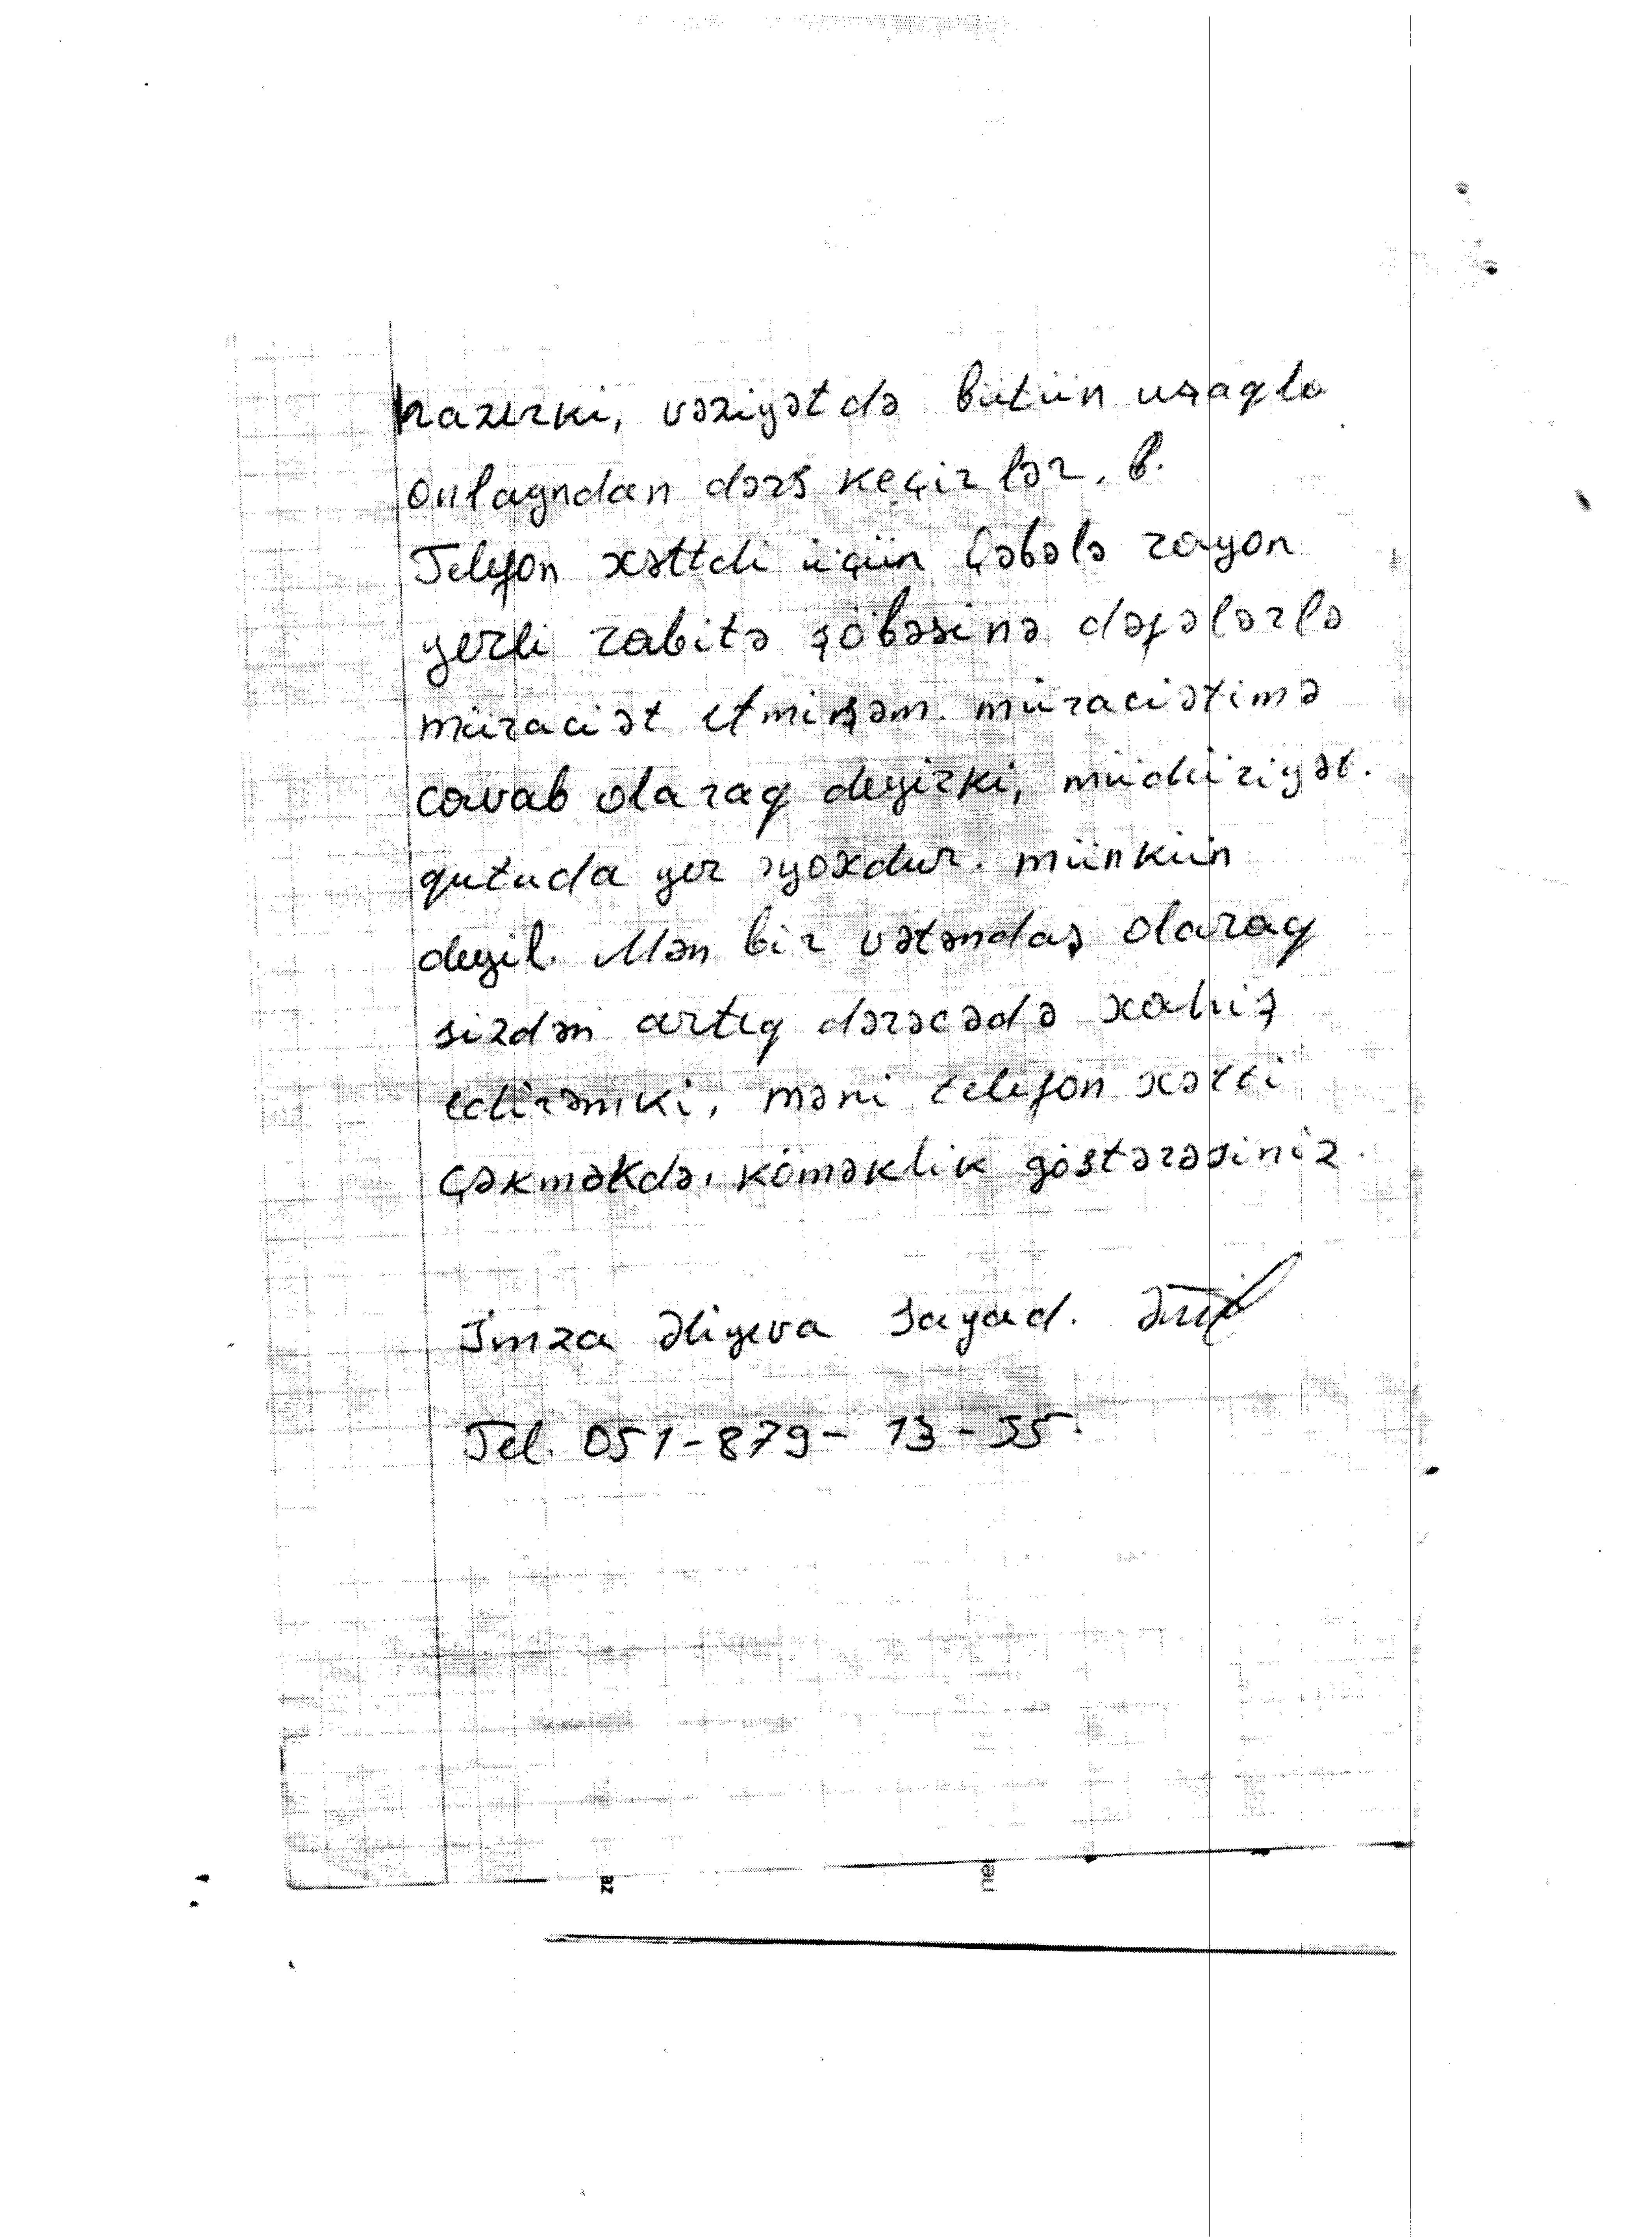 hazırki, vəziyətdə bütün uşaqla
onlayndan dərs keçirlər. b.
Telefon xəttdi üçün Qəbələ rayon
yerli rabitə şöbəsinə dəfələrlə
müraciət etmişəm. müraciətimə
cavab olaraq deyirki, müdüriyət.
qutuda yer yoxdur. münkün
deyil. Mən bir vətəndaş olaraq
sizdən artıq dərəcədə xahiş
edirəmki, məni telefon xətti
çəkməkdə, köməklik göstərəsiniz.
İmza Əliyeva Sayad.
Tel. 051-879-13-55.
az